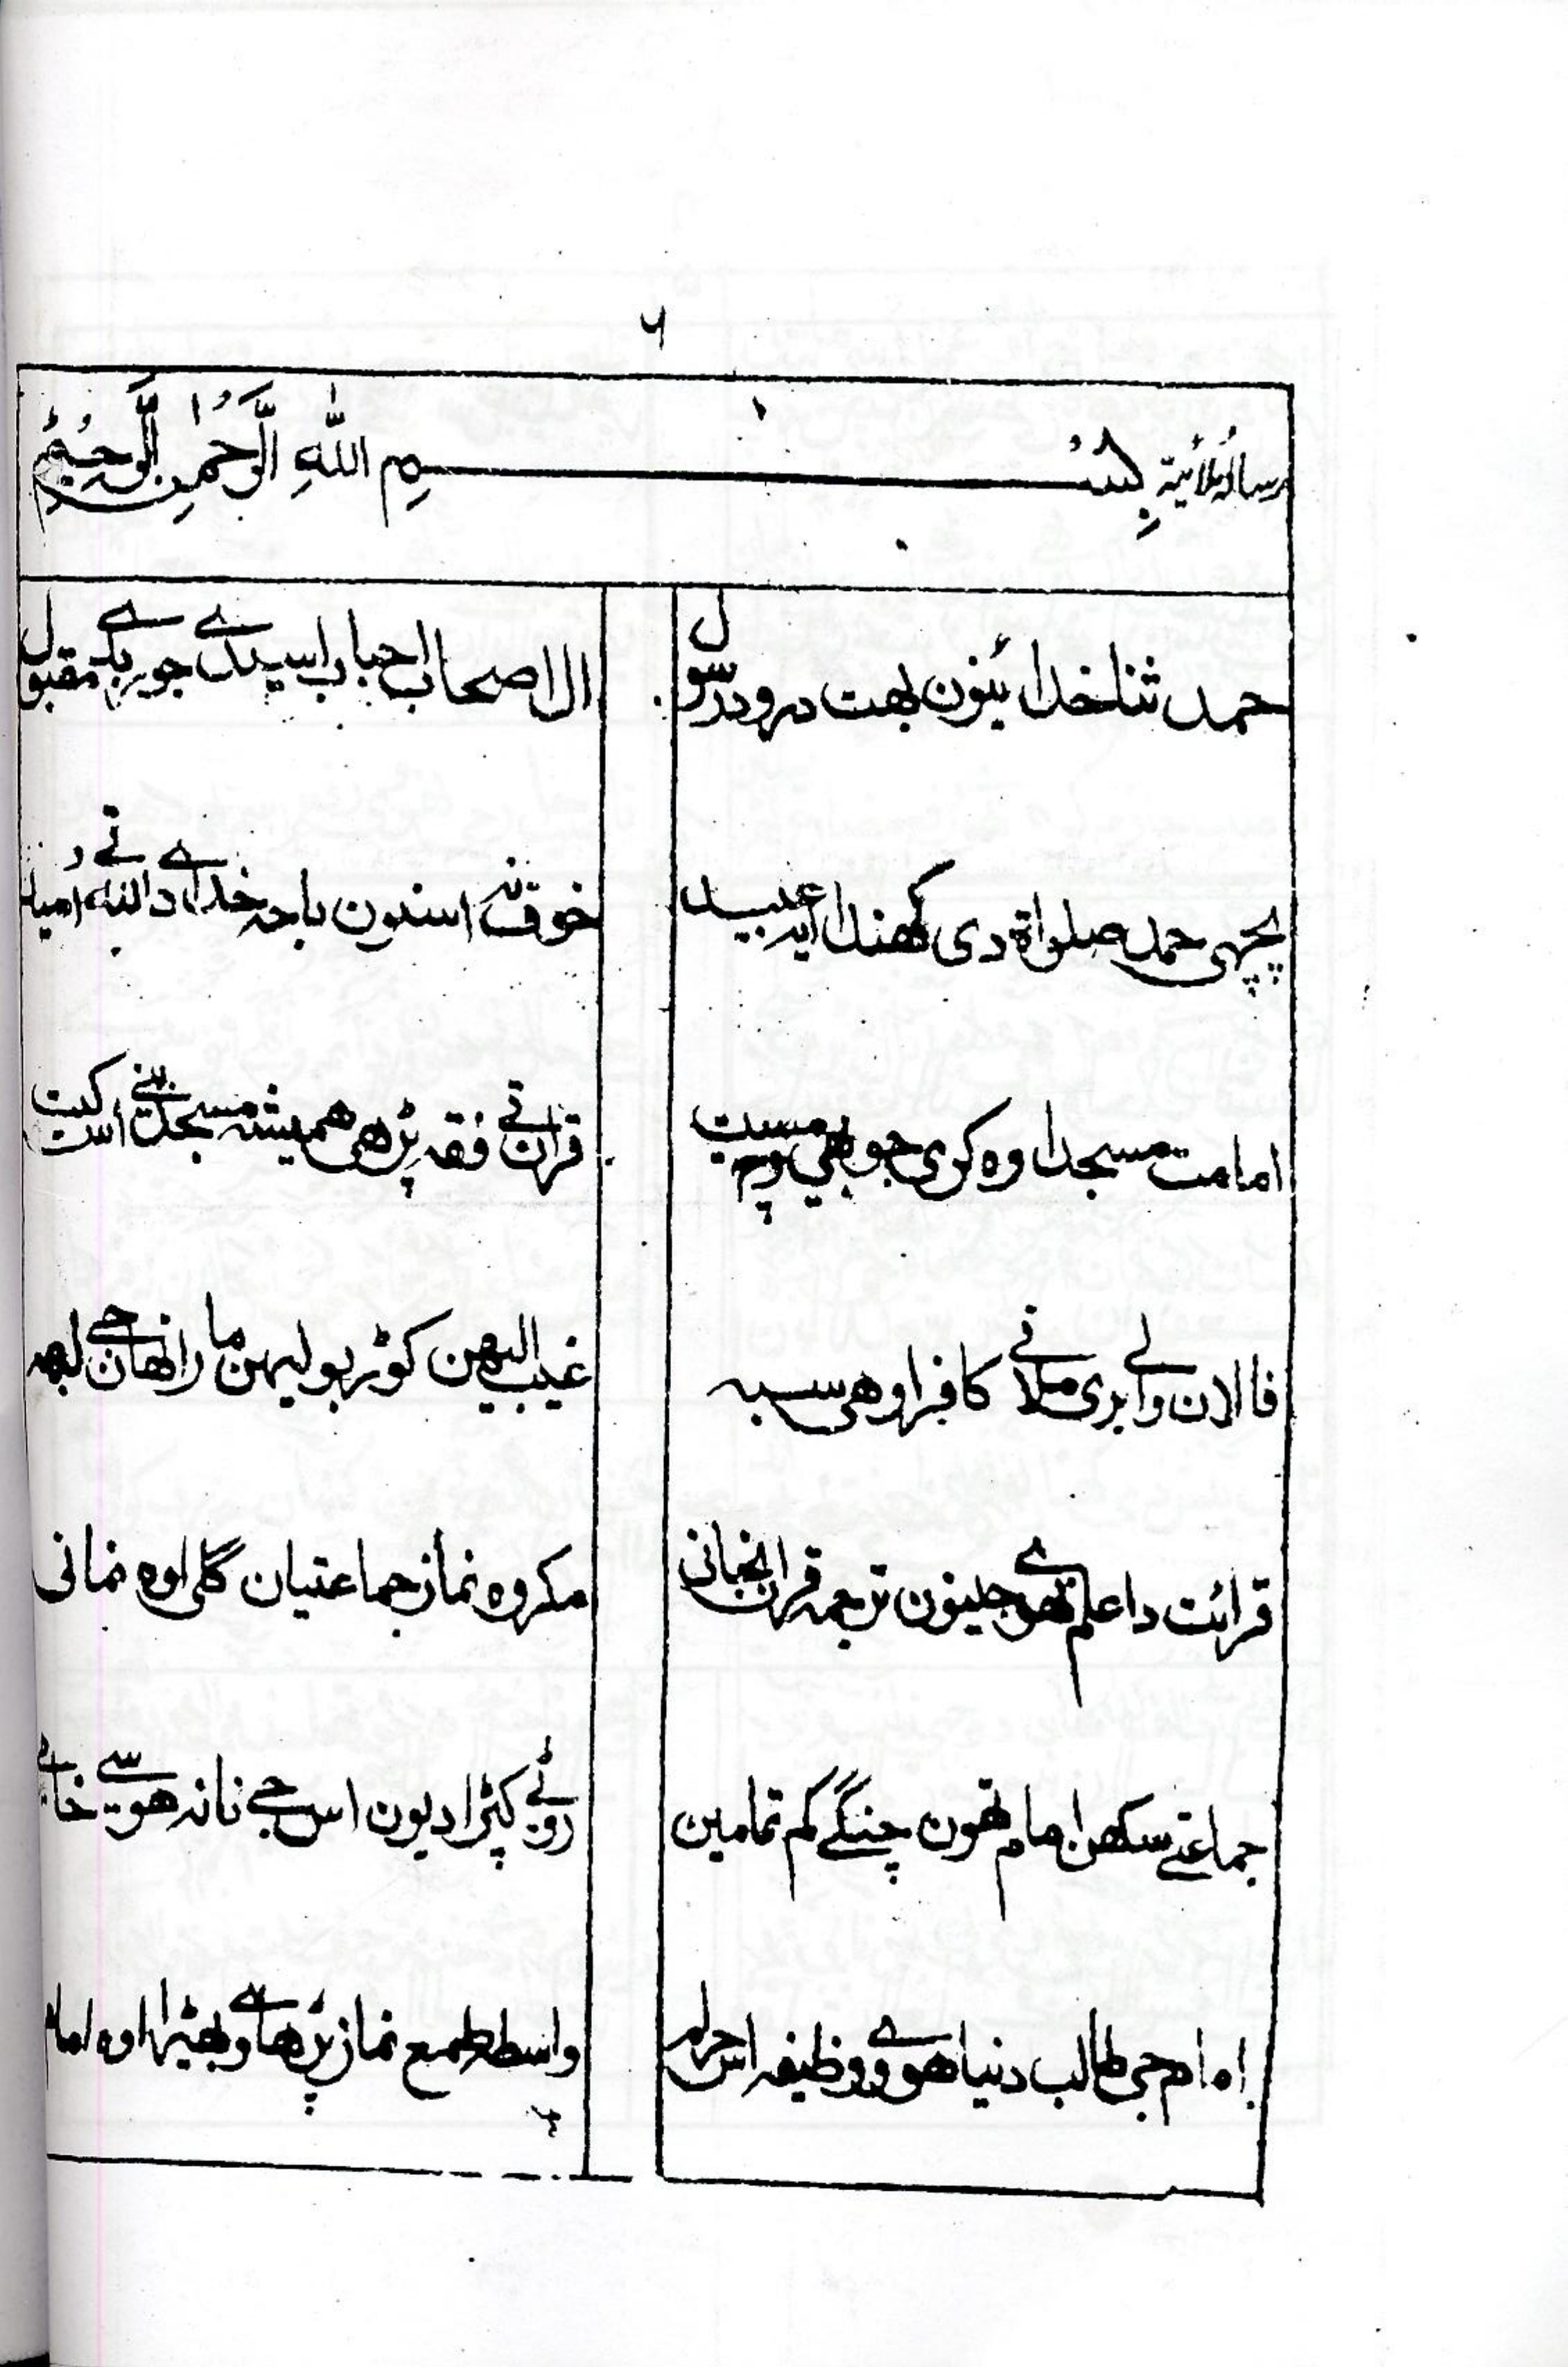 ۶
رساله ملائیة بِسْمِ اللّٰهِ الرَّحْمٰنِ الرَّحِيْمِ
حمد ثنا خدائینون بهت درود رسول ال اصحاب احباب اسیدے جو رب دے مقبول
پچهی حمد صلواة دی کهندا ایه عبید خوف نه اسنون باجه خداے دالله تے امید
امامت مسجد اوه کری جو بهلی پرمسیت قران تے فقه پڑهی همیشه مسجد بنے است کیت
فالان والے بری ملا تے کافر اوهی سبه غیب البهین کوڑ بولیهن مارانهان جے لبهه
قرائت دا علم تهوڑے جینون ترجمه قران نجانی مکروه نماز جماعتیان گلی اوه نمانی
جماعتے سکهن امام تهون چنگے کم تمامین روٹے کپڑا دیون اس جے نانه هوسے
امام جی طالب دنیا هوے و وظیفه اس حرام واسطه طمع نماز پڑهاے و بهیڑا اوه امام